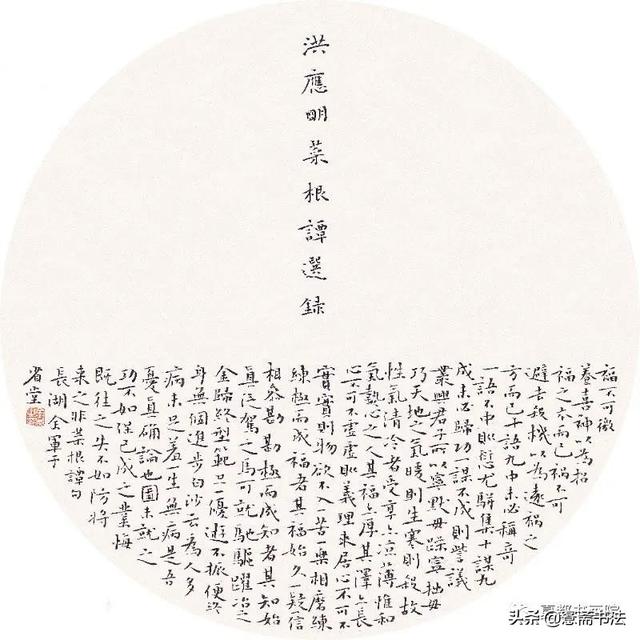 洪應明菜根譚選録
福不可徼
養喜神以為招
福之本而已禍不可
避去殺機以為遠禍之
方而已十語九中未必稱奇
一語不中則愆尤駢集十謀九
成未必歸功一謀不成則訾議
叢興君子所以寧默毋躁寧拙毋
巧天地之氣暖則生寒則殺故
性氣清冷者受享亦涼薄惟和
氣熱心之人其福亦厚其澤亦長
心不可不虛虛則義理來居心不可不
實實則物欲不入一苦一樂相磨練
練極而成福者其福始久一疑一信
相參勘勘極而成知者其知始
真泛駕之馬可就馳驅躍冶之
金歸終型範只一優遊不振便終
身無個進步白沙云為人多
病未足羞一生無病是吾
憂真確論也圖未就之
功不如保已成之業悔
既往之失不如防將
來之非菜根譚句
長湖全軍于
省堂
头条@慧斋书法